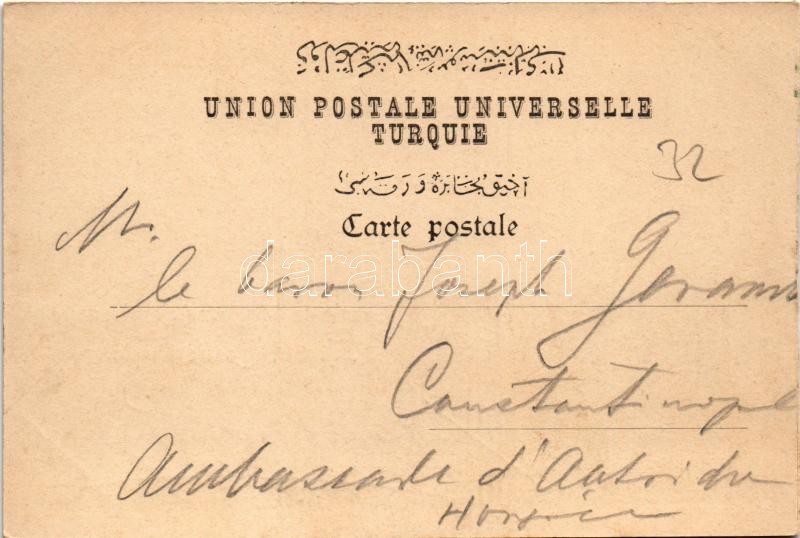 UNION POSTALE UNIVERSELLE
TURQUIE
32
آچیق مخابره ورقه سی
Carte postale
M.
le baron Joseph
Constantinople
Ambassade d'Autriche
Hongrie
darabanth